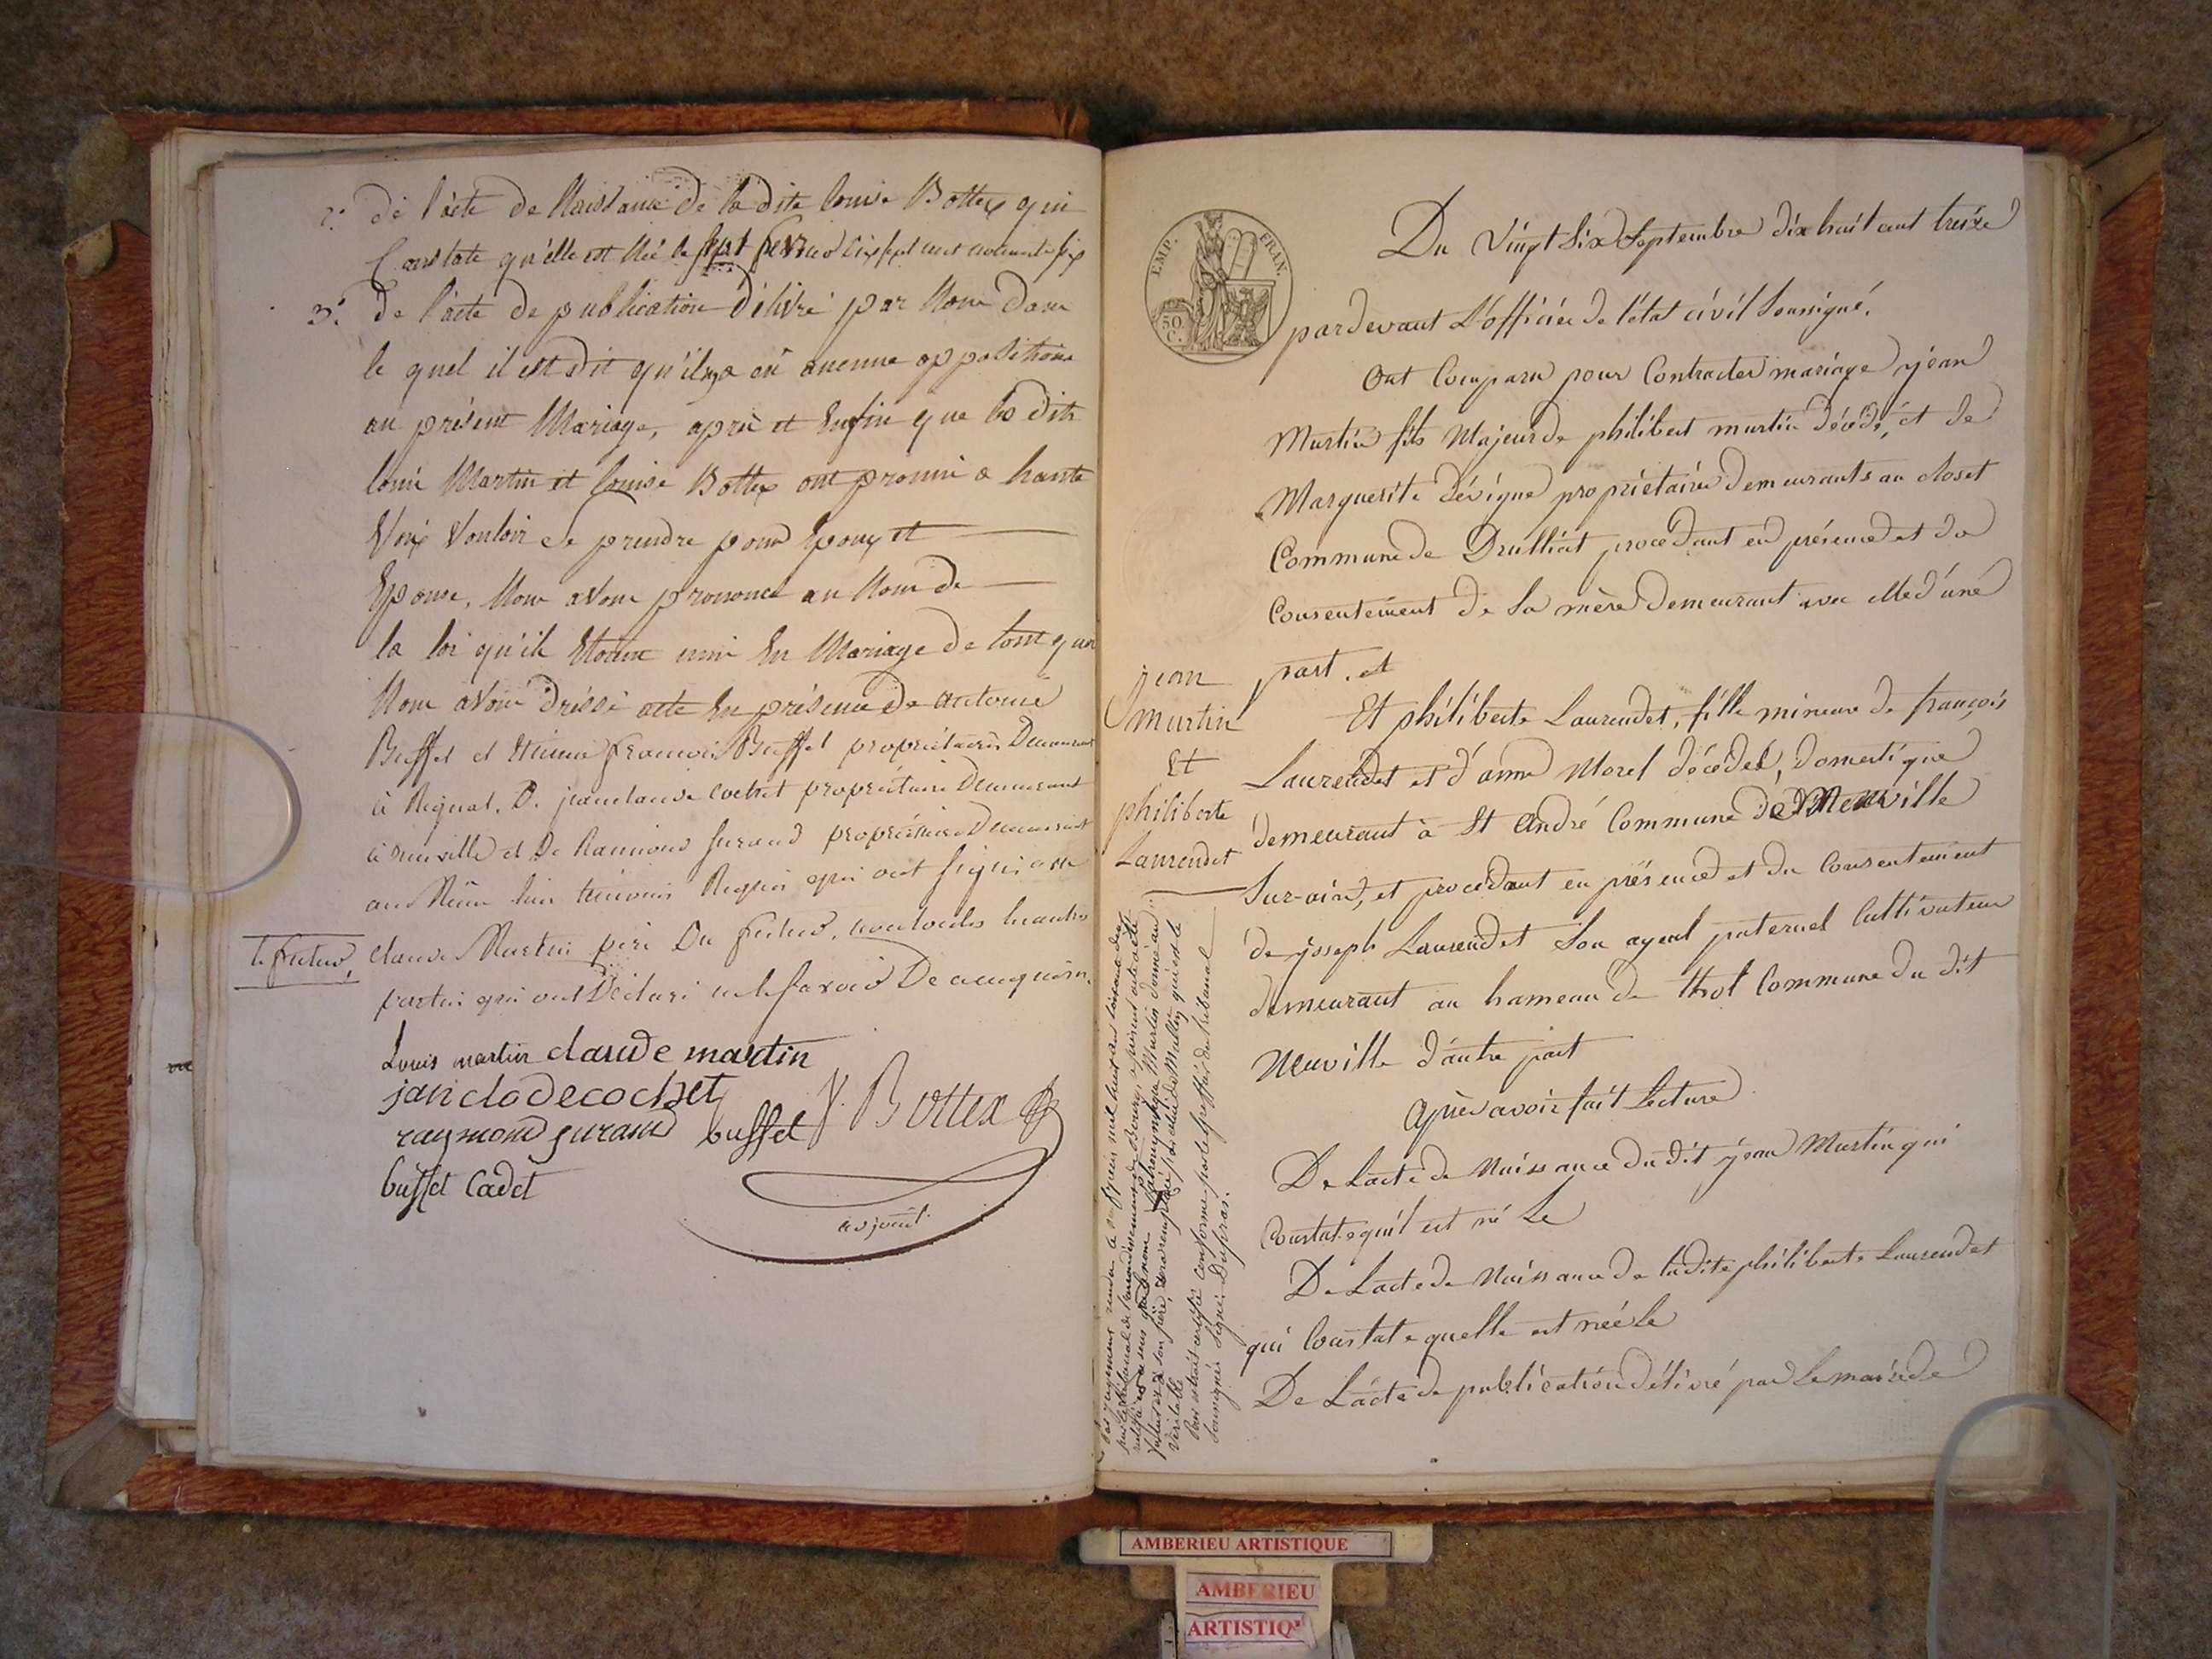 2.° de l'acte de Naissance de la dite Louise Bottex qui
Constate qu'elle est Née le sept fevrier dix sept cent nonante six
3.° de l'acte de publication délivré par Nous dans
le quel il est dit qu'il n'ya eû aucune oppositions
au présent Mariage, après et Enfin que les dits
Louis Martin et Louise Bottex ont promis a haute
Voix Vouloir se prendre pour Epoux et
Epouse, Nous avons prononcé au Nom de
la loi qu'ils étoient unis En Mariage de tout quoi
Nous avons dréssé acte En présence de antoine
Buffet et Etienne françois Buffet propriétaires Demeurant
à Rignat, De jean claude Cochet propriétaire Demeurant
à neuville et De Raimond jurand propriétaire Demeurant
au Même lieu témoins Requis qui ont signé avec
le futur, claude Martin père Du futur, non les autres
parties qui ont Déclaré ne le savoir De ce enquis.
Louis martin claude martin
janclodecochet
raymond jurand buffet J. Bottex
buffet Cadet
adjoint.
EMP. FRAN.
50 C.
Du Vingt Six Septembre dix huit cent treize
pardevant L'officier de l'état civil Soussigné.
Ont Comparu pour Contracter mariage jean
Martin fils Majeur de philibert martin décédé, et de
Marguerite dévigne propriétaires demeurants au closet
Commune de Druilliat procédant en présence et du
Consentement de Sa mère demeurant avec elle d'une
part. et
Et philiberte Laurendet, fille mineure de françois
Laurendet et d'anne Morel décédés, domestique
demeurant à St André Commune de Neuville
Sur-ain, et procédant en présence et du Consentement
de joseph Laurendet Son ayeul paternel Cultivateur
demeurant au hameau de thol Commune du dit
Neuville d'autre part
Après avoir fait Lecture
De Lacte de Naissance du dit jean Martin qui
Constate quil est né Le
De Lacte de Naissance de ladite philiberte Laurendet
qui Constate quelle est née Le
De Lacte de publication délivré par Le maire de
jean
martin
Et
philiberte
Laurendet
Par jugement rendu le
par le tribunal de l'arrondissement de Bourg, le présent acte a été
rectifié en ce sens que le nom patronymique Martin donné au
futur et à son père, sera remplacé par celui de qui est le
véritable
Pour extrait certifié conforme par le greffier du tribunal
soussigné. Signé: Dupras.
AMBERIEU ARTISTIQUE
AMBERIEU
ARTISTIQ